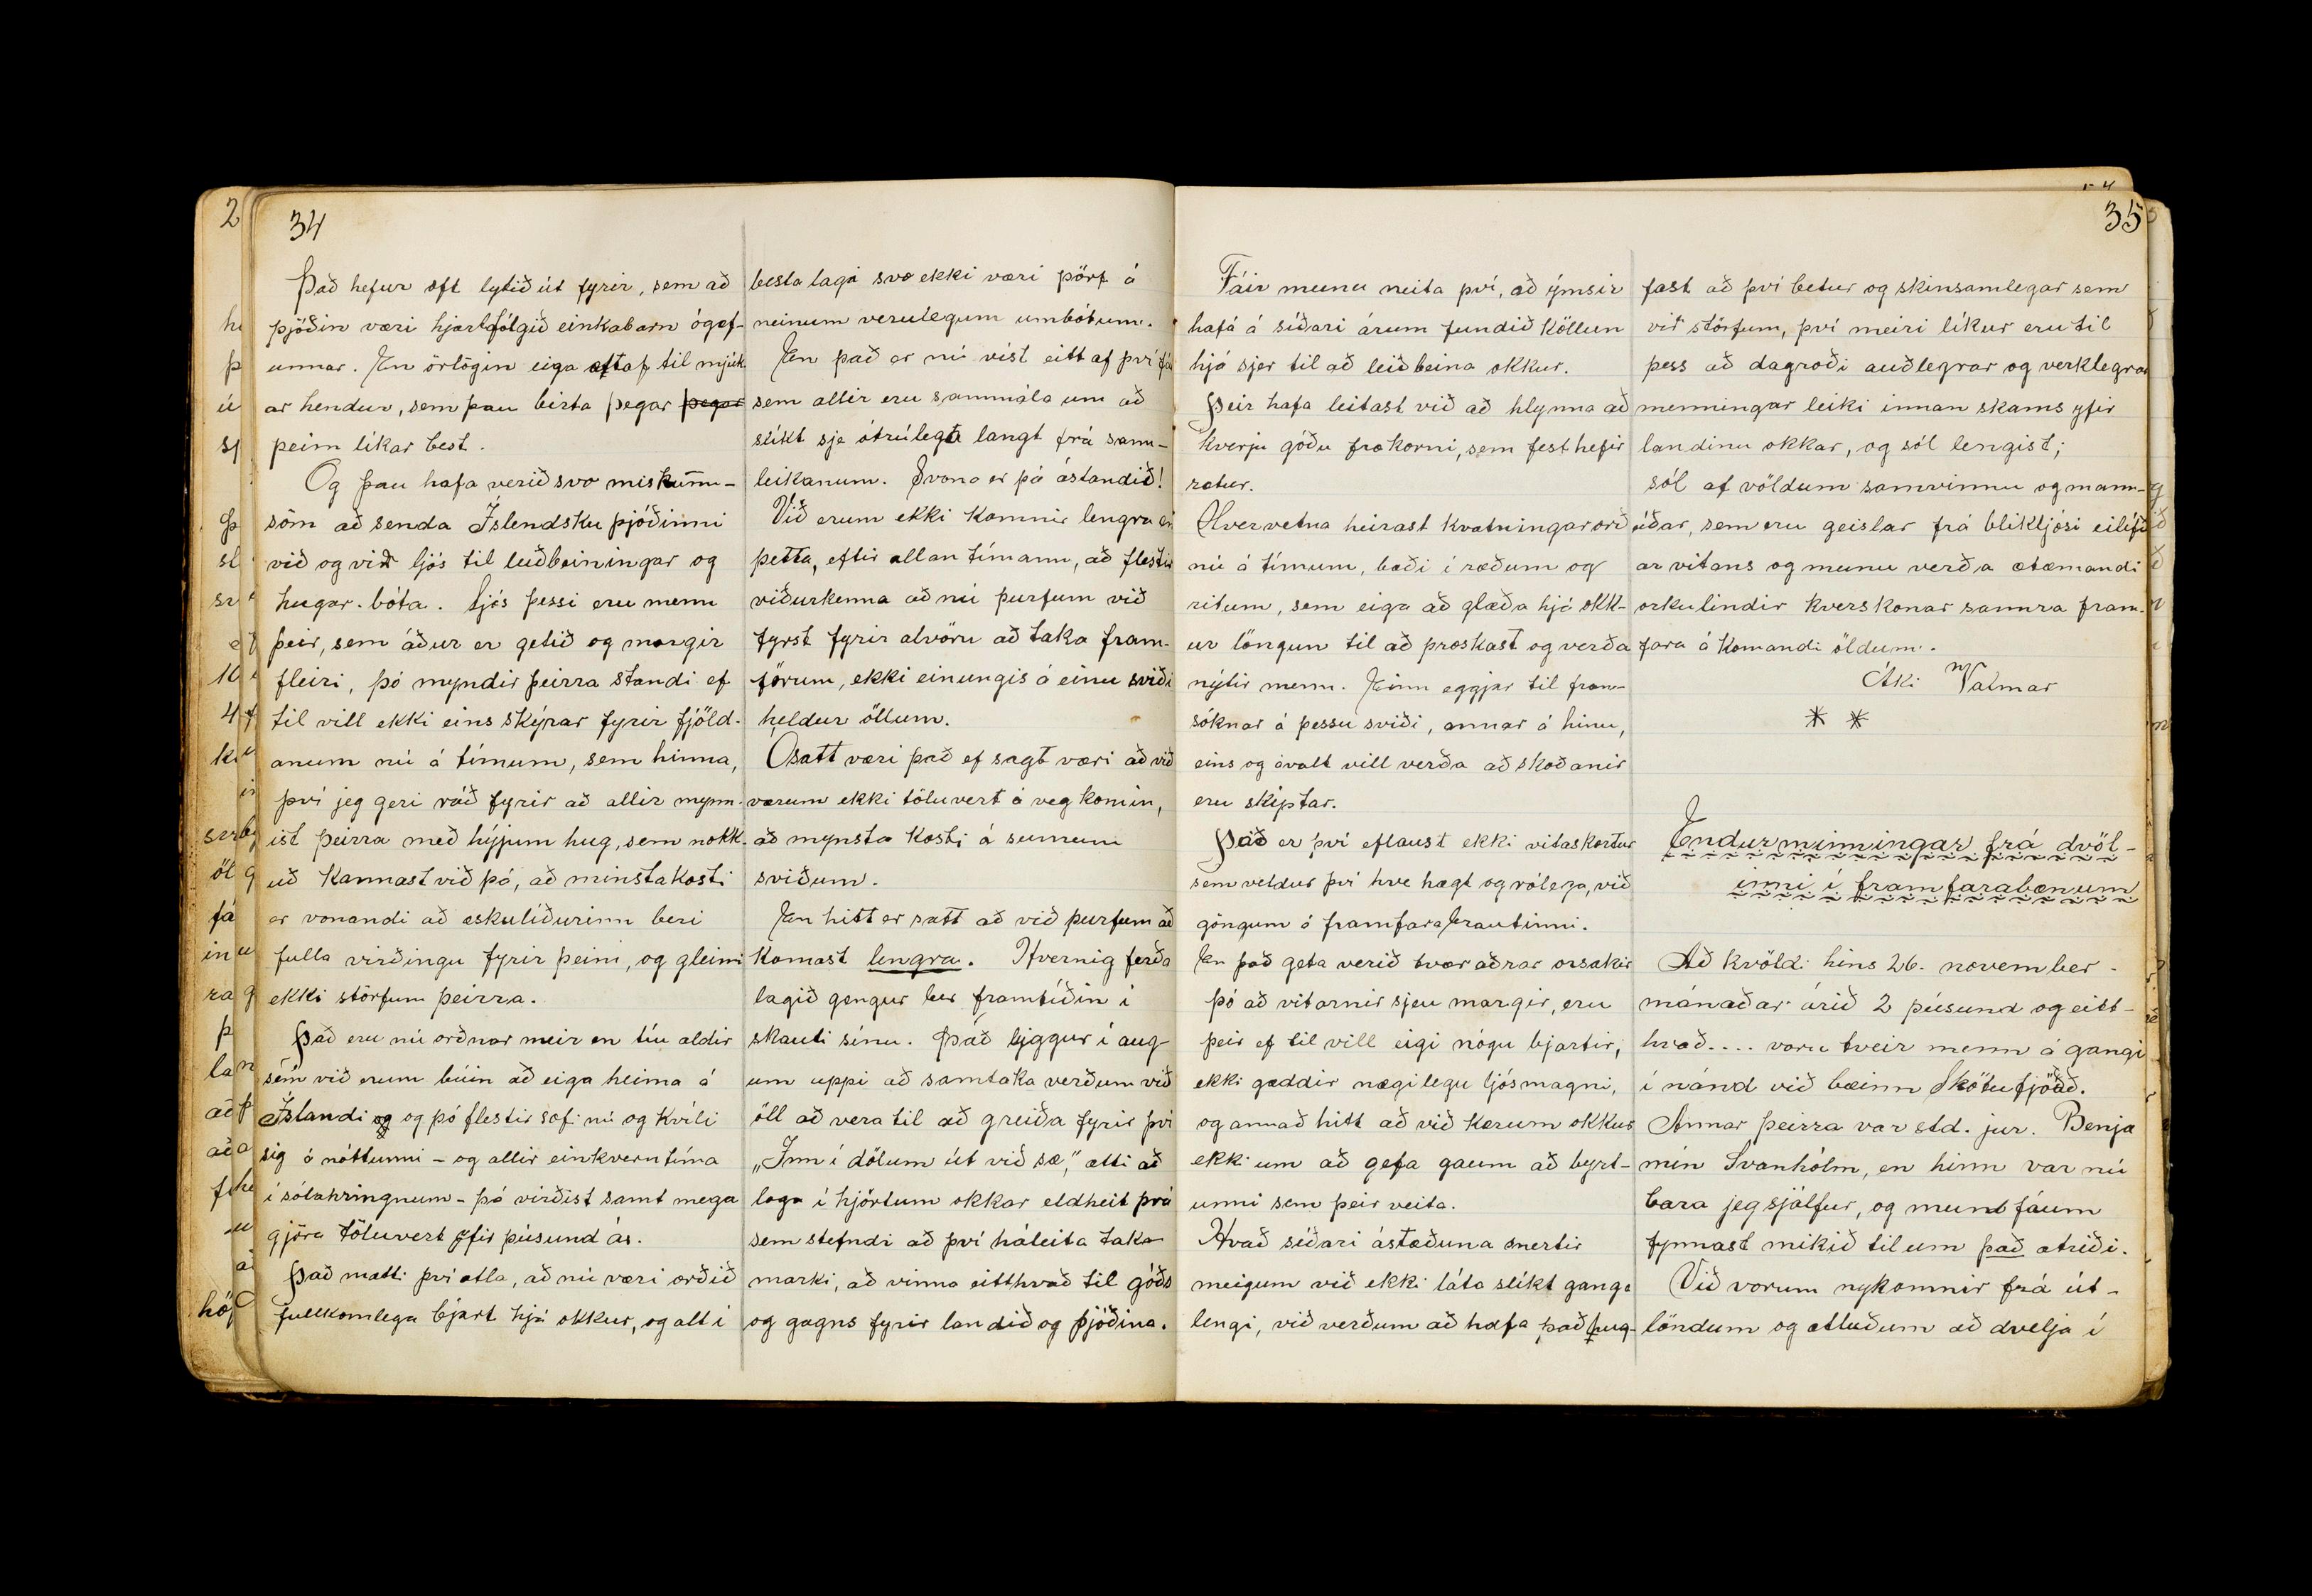 34
Það hefur oft lytið út fyrir, sem að
þjóðin væri hjartfólgið einkabarn ógæf-
unnar. En örlögin eiga altaf til mjúk-
ar hendur, sem þau birta þegar þegar
þeim líkar best.
Og þau hafa verið svo miskunn-
söm að senda Íslendsku þjóðinni
við og við ljós til leiðbeiningar og
hugar-bóta. Ljós þessi eru menn
þeir, sem áður er getið og margir
fleiri, þó myndir þeirra standi ef
til vill ekki eins skýrar fyrir fjöld-
anum nú á tímum, sem hinna,
því jeg geri ráð fyrir að allir mynn-
ist þeirra með hýjum hug, sem nokk-
uð kannast við þá, að minsta kosti
er vonandi að æskulíðurinn beri
fulla virðingu fyrir þeim, og gleimi
ekki störfum þeirra.
Það eru nú orðnar meir en tíu aldir
sem við erum búin að eiga heima á
Íslandi og og þó flestir sofi nú og kvíli
sig á nóttunni - og allir einkverntíma
í sólahringnum - þá virðist samt mega
gjöra töluvert yfir þúsund ár.
Það mætti því ætla, að nú væri orðið
fullkomlega bjart hjá okkur, og alt í
besta lagi svo ekki væri þörf á
neinum verulegum umbótum.
En það er nú víst eitt af því fáa
sem allir eru sammála um að
slíkt sje ótrúlega langt frá sann-
leikanum. Svona er þá ástandið!
Við erum ekki komnir lengra en
þetta, eftir allan tímann, að flestir
viðurkenna að nú þurfum við
fyrst fyrir alvöru að taka fram-
förum, ekki einungis á einu sviði
heldur öllum.
Ósatt væri það ef sagt væri að við
værum ekki töluvert á veg komin,
að mynsta kosti á sumum
sviðum.
En hitt er satt að við þurfum að
komast lengra. Hvernig ferða
lagið gengur ber framtíðin í
skauti sínu. Það liggur í aug-
um uppi að samtaka verðum við
öll að vera til að greiða fyrir því
„Inn í dölum út við sæ," ætti að
loga í hjörtum okkar eldheit þrá
sem stefndi að því háleita taka-
marki, að vinna eitthvað til góðs
og gagns fyrir landið og þjóðina.
35
Fáir munu neita því, að ýmsir
hafá á síðari árum fundið köllun
hjá sjer til að leiðbeina okkur.
Þeir hafa leitast við að hlynna að
kverju góðu frækorni, sem fest hefir
rætur.
Hvervetna heirast kvatningarorð
nú á tímum, bæði í ræðum og
ritum, sem eiga að glæða hjá okk-
ur löngun til að þroskast og verða
nýtir menn. Einn eggjar til fram-
sóknar á þessu sviði, annar á hinu,
eins og ávalt vill verða að skoðanir
eru skiptar.
Það er því eflaust ekki vitaskortur
sem veldur því hve hægt og rólega, við
göngum á framfarabrautinni.
En það geta verið tvær aðrar orsakir
þó að vitarnir sjeu margir, eru
þeir ef til vill eigi nógu bjartir,
ekki gæddir nægilegu ljósmagni,
og annað hitt að við kærum okkur
ekki um að gefa gaum að byrt-
unni sem þeir veita.
Hvað síðari ástæðuna snertir
meigum við ekki láta slíkt ganga
lengi, við verðum að hafa það hug-
fast að því betur og skinsamlegar sem
við störfum, því meiri líkur eru til
þess að dagroði auðlegrar og verklegrar
menningar leiki innan skams yfir
landinu okkar, og sól lengist;
sól af völdum samvinnu og mann-
úðar, sem eru geislar frá blikljósi eilífð
ar vitans og munu verða ótæmandi
orkulindir kverskonar sannra fram-
fara á komandi öldum.
Áki Valmar
* *
Endurminningar frá dvöl-
inni í framfarabænum
Að kvöldi hins 26. november -
mánaðar árið 2 þúsund og eitt-
hvað.... voru tveir menn á gangi
í nánd við bæinn Skötufjöðð.
Annar þeirra var std. jur. Benja
mín Svanhólm, en hinn var nú
bara jeg sjálfur, og mund fáum
fynnast mikið til um það atriði.
Við vorum nykomnir frá út-
löndum og ætluðum að dvelja í